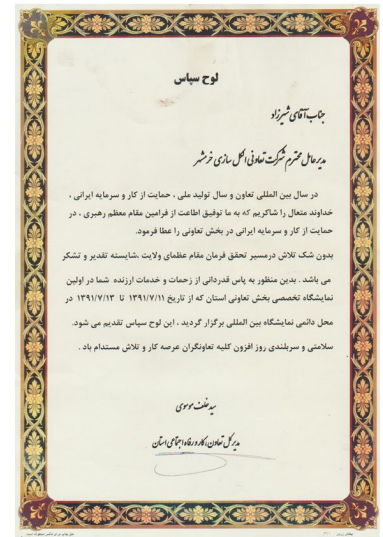 لوح سپاس
جناب آقای شیرزاد
مدیرعامل محترم شرکت تعاونی الکل سازی خرمشهر
در سال بین المللی تعاون و سال تولید ملی ، حمایت از کار و سرمایه ایرانی ،
خداوند متعال را شاکریم که به ما توفیق اطاعت از فرامین مقام معظم رهبری ، در
حمایت از کار و سرمایه ایرانی در بخش تعاونی را عطا فرمود.
بدون شک تلاش درمسیر تحقق فرمان مقام عظمای ولایت ،شایسته تقدیر و تشکر
می باشد . بدین منظور به پاس قدردانی از زحمات و خدمات ارزنده شما در اولین
نمایشگاه تخصصی بخش تعاونی استان که از تاریخ ۱۳۹۱/۷/۱۱ تا ۱۳۹۱/۷/۱۳ در
محل دائمی نمایشگاه بین المللی برگزار گردید ، این لوح سپاس تقدیم می شود.
سلامتی و سربلندی روز افزون کلیه تعاونگران عرصه کار و تلاش مستدام باد .
سید خلف موسوی
مدیرکل تعاون،کار و رفاه اجتماعی استان